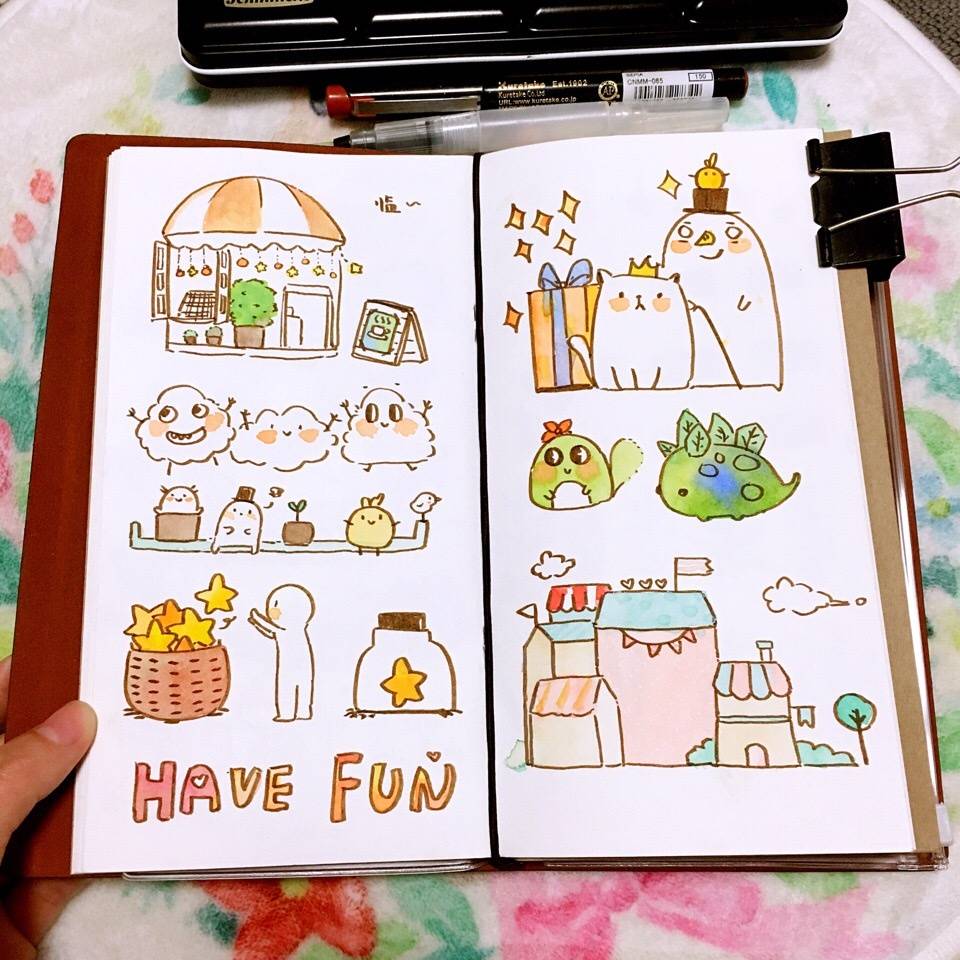 Kuretake Est.1902
Kuretake Co.,Ltd
URL:www.kuretake.co.jp
SEPIA
CNMM-065
150
HAVE FUN